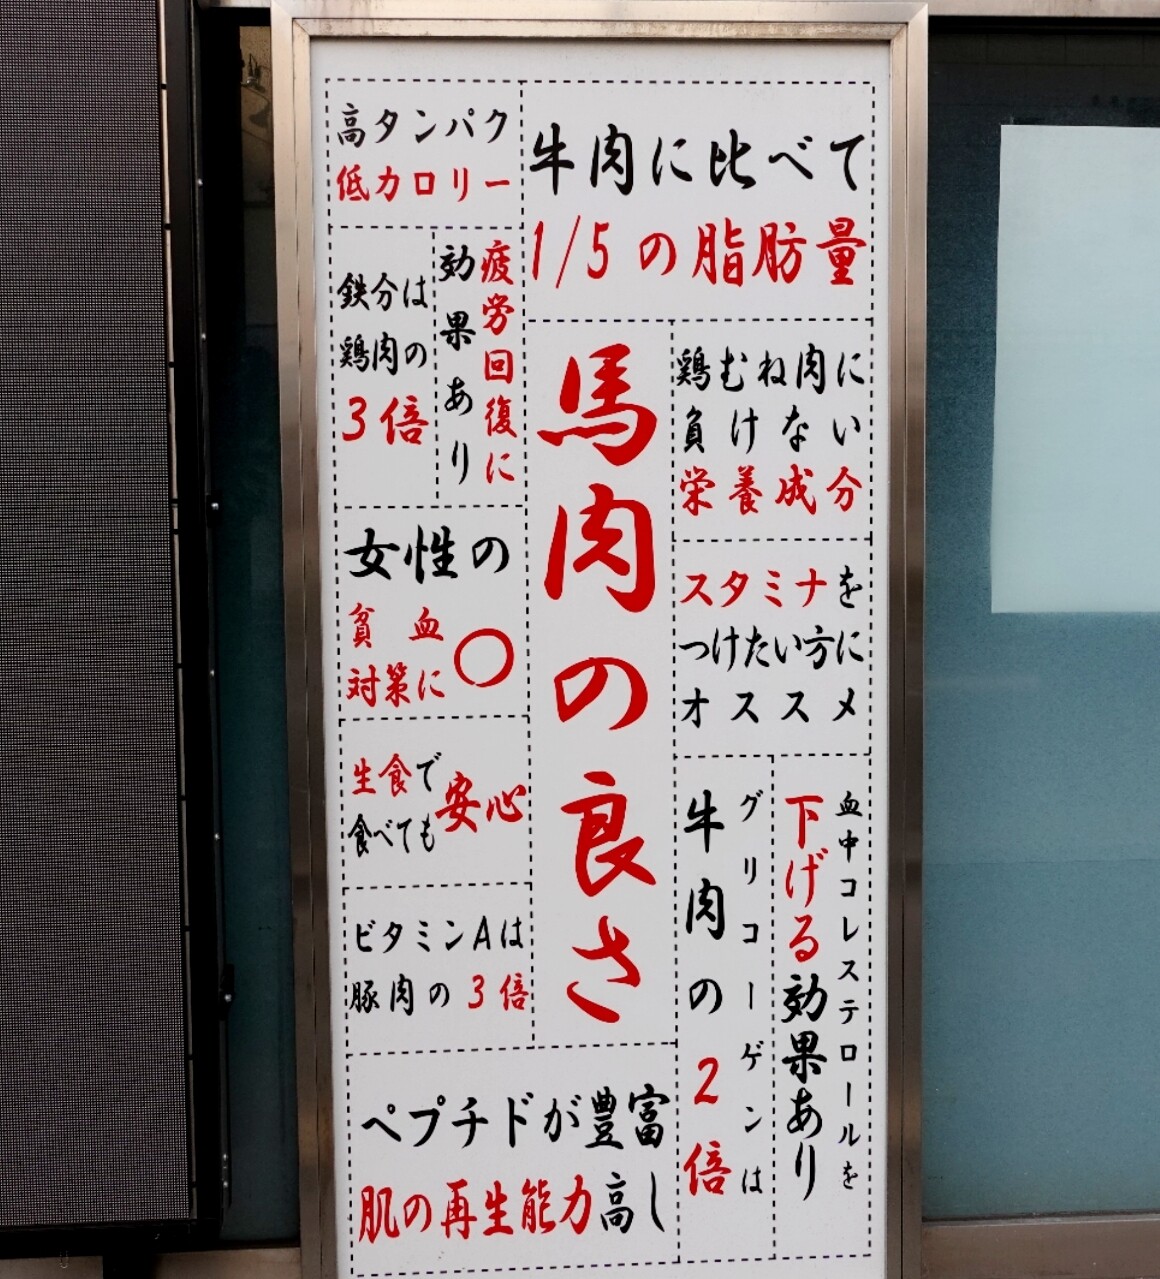 高タンパク
低カロリー
牛肉に比べて
1/5の脂肪量
鉄分は
鶏肉の
3倍
疲労回復に
効果あり
馬肉の良さ
鶏むね肉に
負けない
栄養成分
女性の
貧血
対策に
○
スタミナを
つけたい方に
オススメ
生食で
食べても
安心
ビタミンAは
豚肉の3倍
グリコーゲンは
牛肉の2倍
血中コレステロールを
下げる効果あり
ペプチドが豊富
肌の再生能力高し